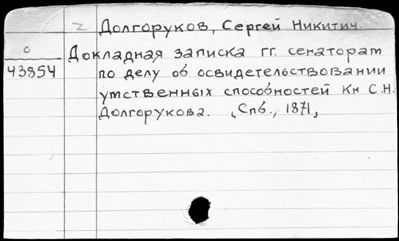 z Долгоруков, Сергей Никитич
о Докладная записка гг. сенаторам
43854 по делу об освидетельствовании
умственных способностей Кн С.Н.
Долгорукова. , Спб., 1871,